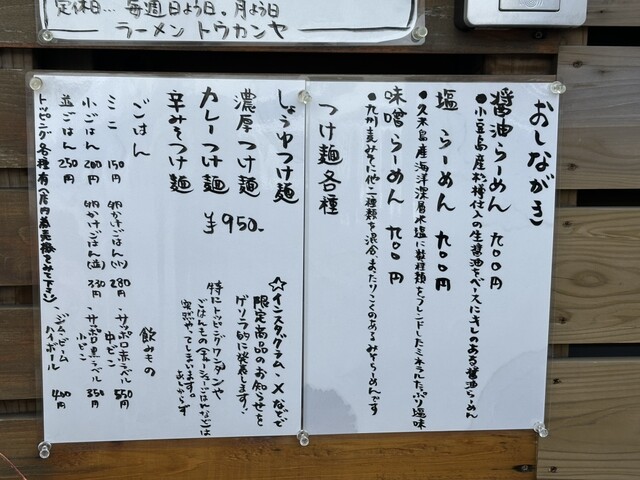 定休日…毎週日よう日、月よう日
ラーメン トウカンヤ
おしながき
醤油らーめん 九〇〇円
●小豆島産杉樽仕入の生醤油をベースにキレのある醤油らーめん
塩らーめん 九〇〇円
●久米島産海洋深層水塩に数種類をブレンドしたミネラルたっぷり塩味
味噌らーめん 九〇〇円
●九州麦みそに他二種類を混合、まったりこくのあるみそらーめんです
つけ麺各種
しょうゆつけ麺
濃厚つけ麺
カレーつけ麺
辛みそつけ麺
¥950-
☆インスタグラム、Xなどで
限定商品のお知らせを
ゲリラ的に発表します!
特にトッピングワンタンや
ごはんもの(チャーシューごはんなど)は
突然やってしまいます。
あしからず
ごはん
ミニ 150円
小ごはん 200円
並ごはん 250円
卵かけごはん(小) 280円
卵かけごはん(並) 330円
トッピング各種有(店内黒板をみて下さい)
飲みもの
・サッポロ赤ラベル
中ビン 550
・サッポロ黒ラベル
小ビン 350
ジムビーム
ハイボール 400円